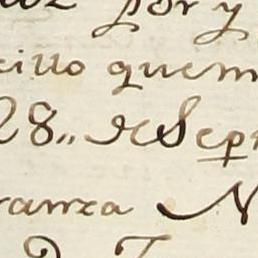 por y
cillo quem
28,, de Sep
ranza N